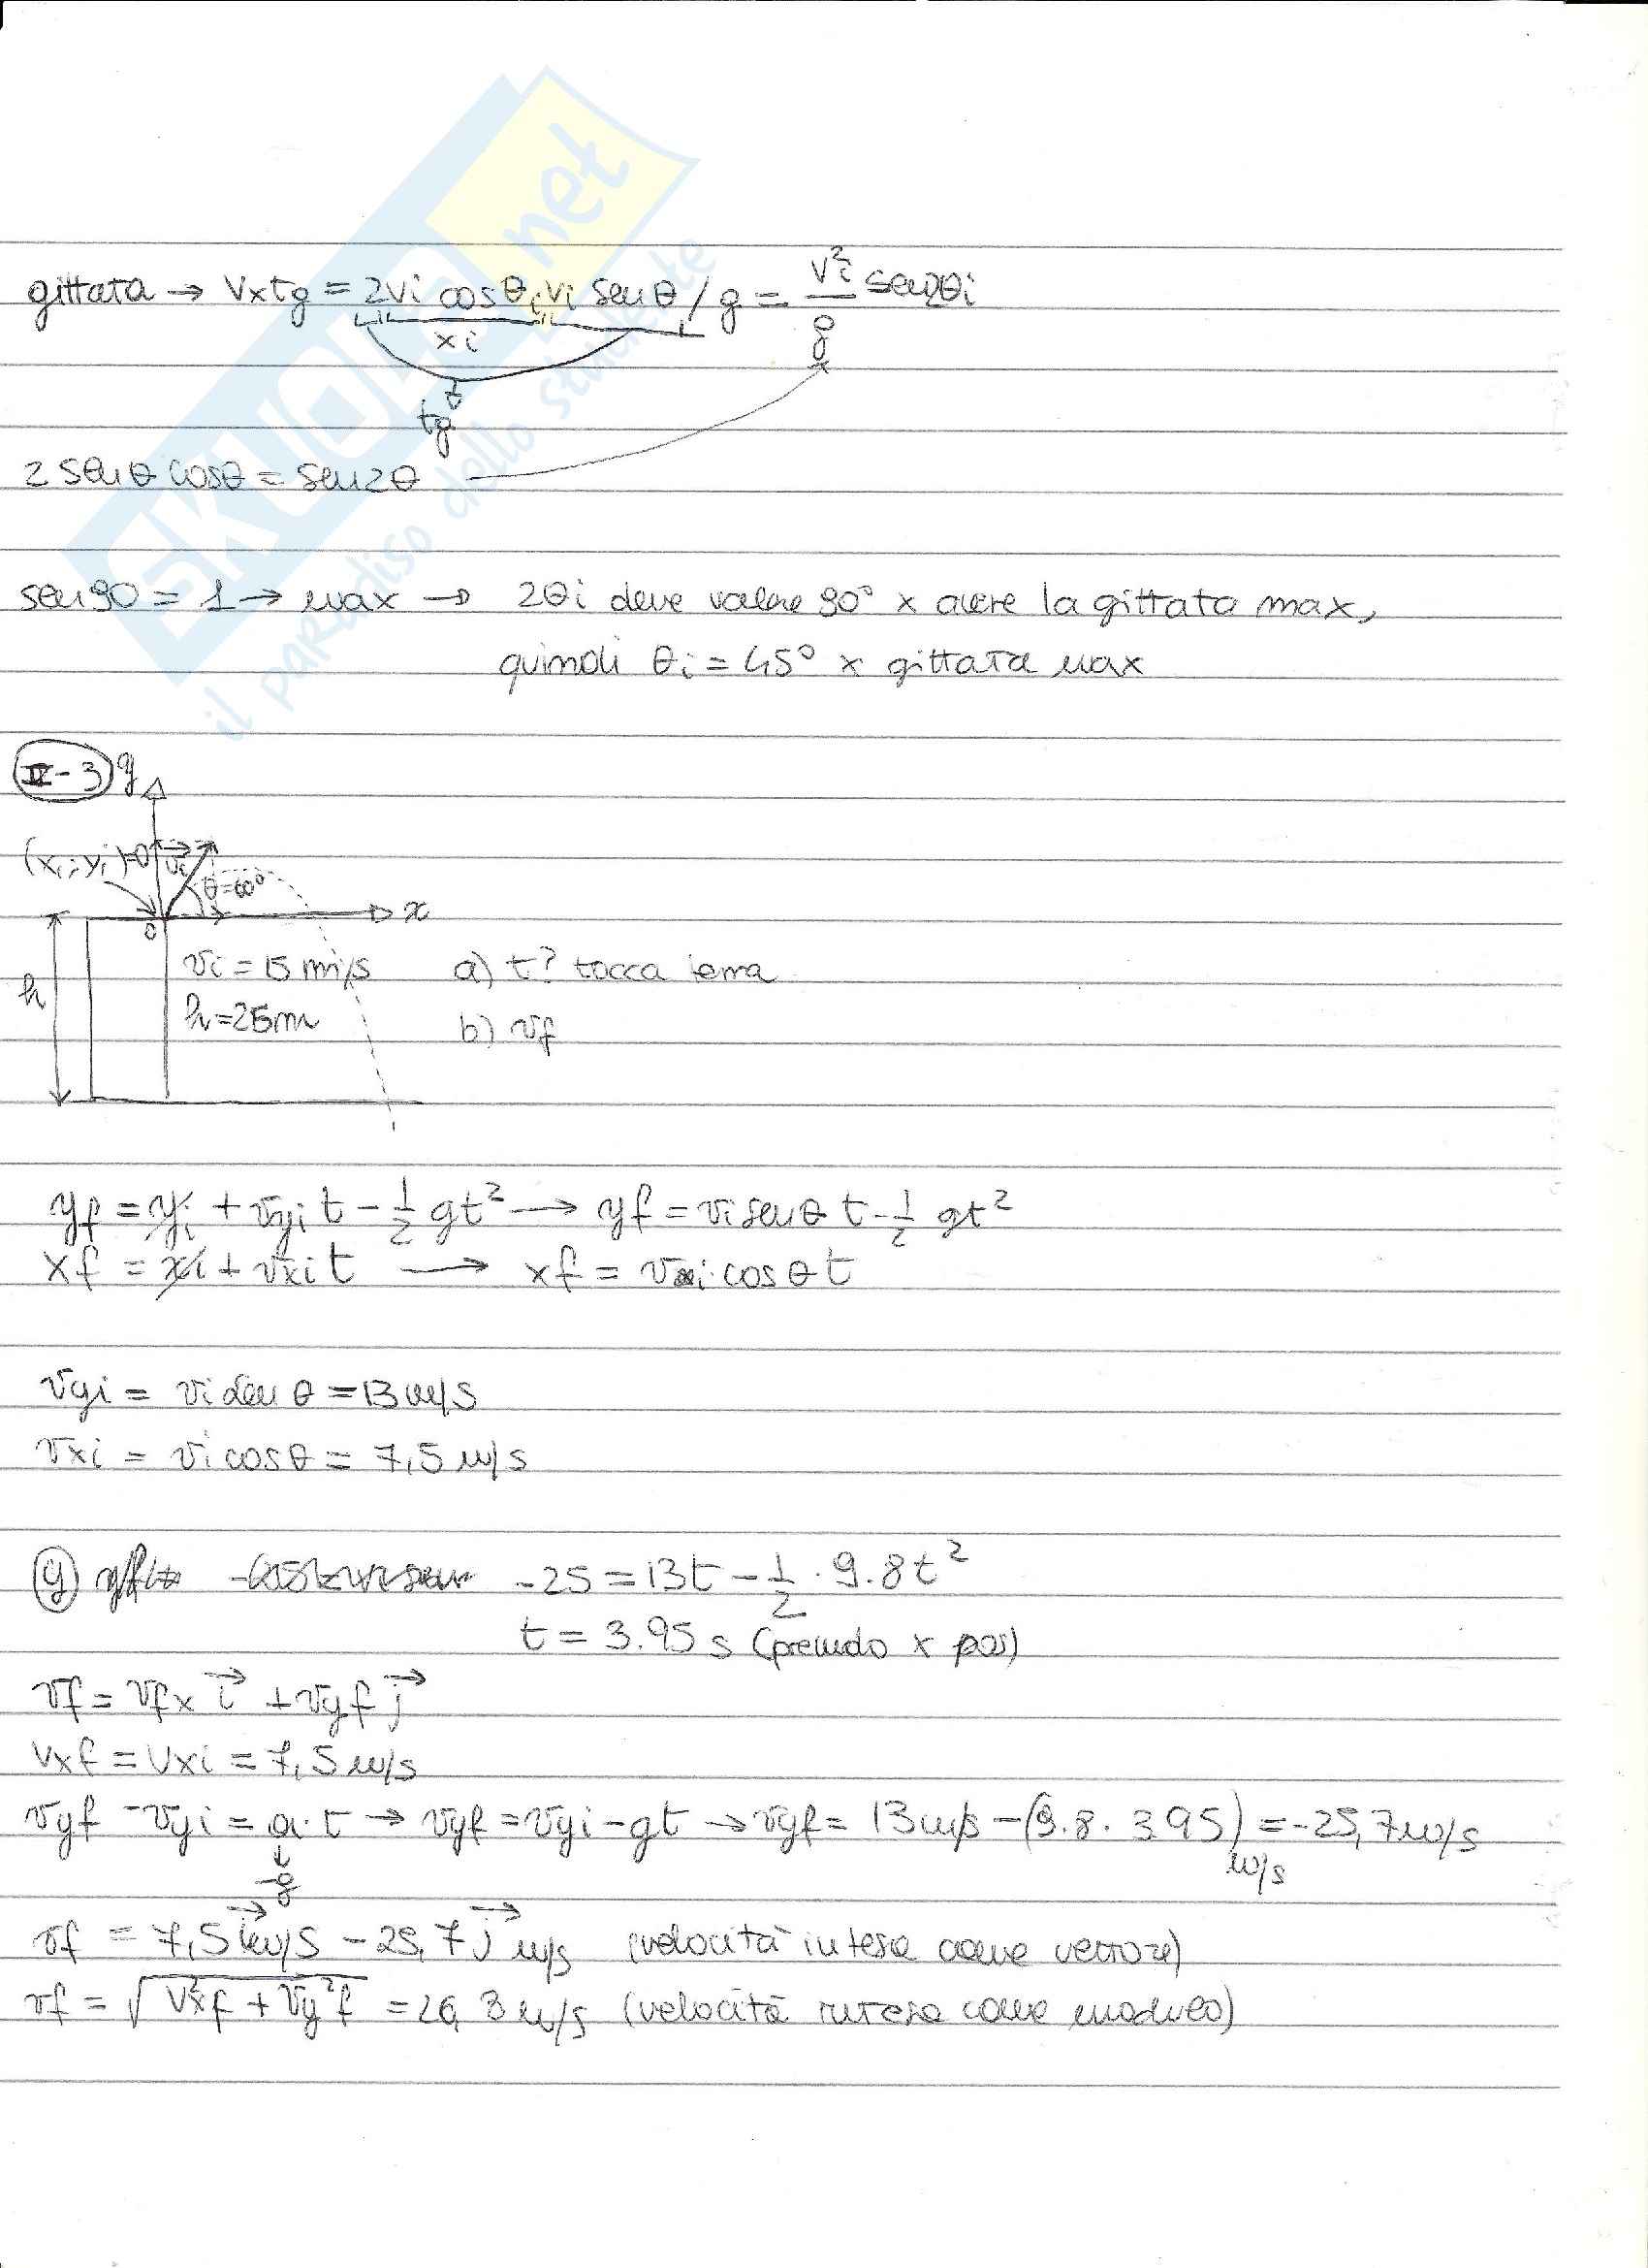 SKUOLA.net
il paradiso dello studente
gittata → Vxtg = 2vi cosθi vi senθ / g = vi²/g sen2θi
xi
tg
2 senθ cosθ = sen2θ
sen90 = 1 → max → 2θi deve valere 90° x avere la gittata max,
quindi θi = 45° x gittata max
II-3) y
(xi; yi)=0 vi
θ=60°
x
0
vi = 15 m/s a) t? tocca terra
h
h=25m b) vf
yf = yi + vyi t - 1/2 gt² → yf = vi senθ t - 1/2 gt²
xf = xi + vxi t → xf = vi cosθ t
vyi = vi senθ = 13 m/s
vxi = vi cosθ = 7,5 m/s
y -25 = 13t - 1/2 · 9.8t²
t = 3.95 s (prendo x pos)
vf = vfx i + vyf j
vxf = vxi = 7,5 m/s
vyf - vyi = a·t → vyf = vyi - gt → vyf = 13 m/s - (9.8 · 3.95) m/s = -25,7 m/s
-g
vf = 7,5 i m/s - 25,7 j m/s (velocità intesa come vettore)
vf = √vx²f + vy²f = 26,8 m/s (velocità intesa come modulo)